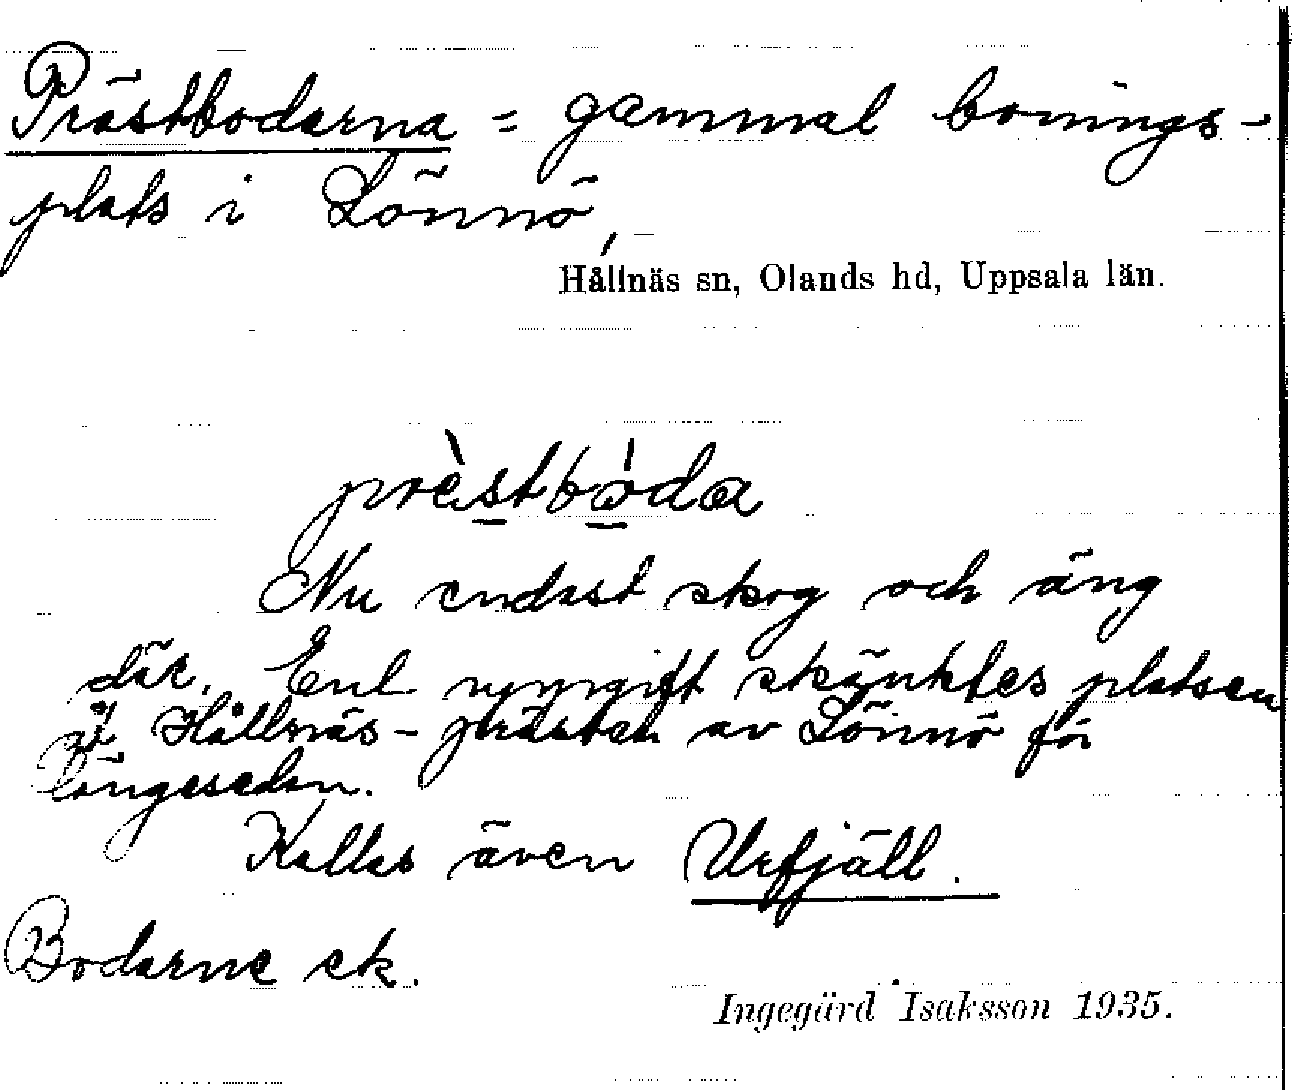 Prästbodarna = gammal bonings-
plats i Lönnö,
Hållnäs sn, Olands hd, Uppsala län.
prèstbóda
Nu endast skog och äng
där. Enl uppgift skänktes platsen
åt Hållnäs-prästen av Lönnö för
längesedan.
Kallas även Urfjäll.
Bodarne ek.
Ingegärd Isaksson 1935.